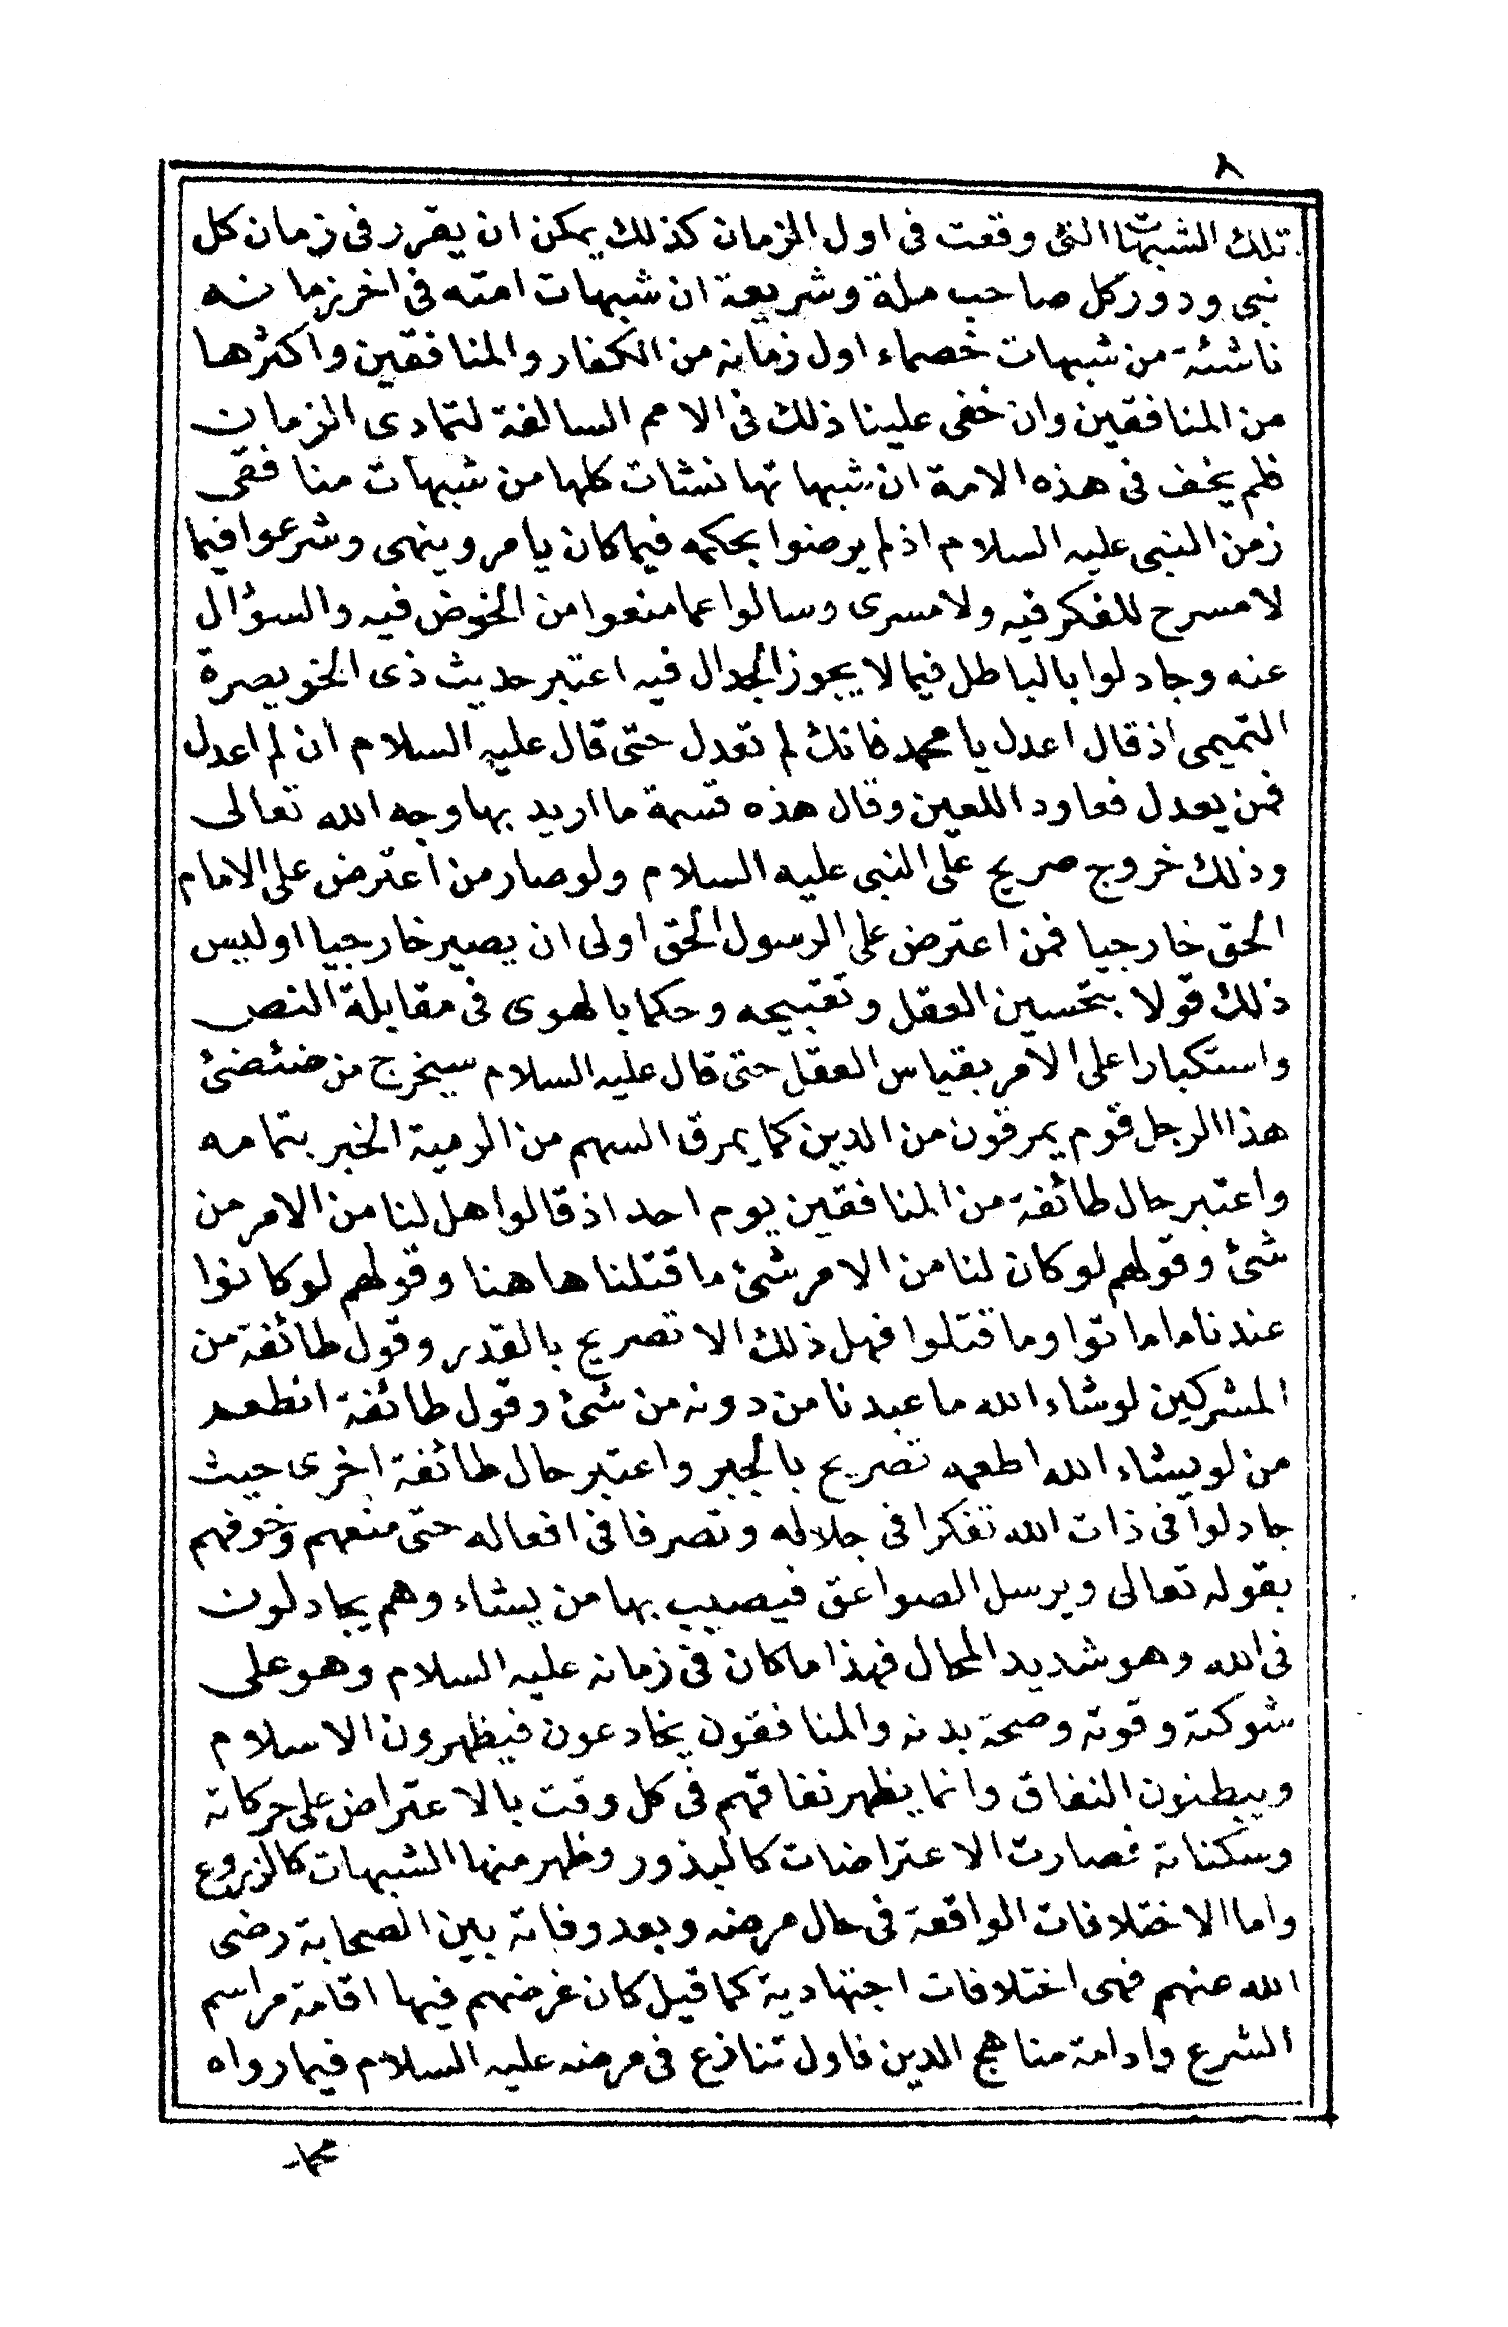 ٨
تلك الشبهات التى وقعت فى اول الزمان كذلك يمكن ان يقرر فى زمان كل
نبى ودور كل صاحب ملة وشريعة ان شبهات امته فى اخر زمانه
ناشئة من شبهات خصماء اول زمانه من الكفار والمنافقين واكثرها
من المنافقين وان خفى علينا ذلك فى الامم السالفة لتمادى الزمان
فلم يخف فى هذه الامة ان شبهاتها نشات كلها من شبهات منافقى
زمن النبى عليه السلام اذ لم يرضوا بحكمه فيما كان يامر وينهى وشرعوا فيما
لا مسرح للفكر فيه ولا مسرى وسالوا عما منعوا من الخوض فيه والسؤال
عنه وجادلوا بالباطل فيما لا يجوز الجدال فيه اعتبر حديث ذى الخويصرة
التميمى اذ قال اعدل يا محمد فانك لم تعدل حتى قال عليه السلام ان لم اعدل
فمن يعدل فعاود اللعين وقال هذه قسمة ما اريد بها وجه الله تعالى
وذلك خروج صريح على النبى عليه السلام ولو صار من اعترض على الامام
الحق خارجيا فمن اعترض على الرسول الحق اولى ان يصير خارجيا اوليس
ذلك قولا بتحسين العقل وتقبيحه وحكما بالهوى فى مقابلة النص
واستكبارا على الامر بقياس العقل حتى قال عليه السلام سيخرج من ضئضئ
هذا الرجل قوم يمرقون من الدين كما يمرق السهم من الرمية الخبر بتمامه
واعتبر حال طائفة من المنافقين يوم احد اذ قالوا هل لنا من الامر من
شئ وقولهم لو كان لنا من الامر شئ ما قتلنا هاهنا وقولهم لو كانوا
عندنا ما ماتوا وما قتلوا فهل ذلك الا تصريح بالقدر وقول طائفة من
المشركين لو شاء الله ما عبدنا من دونه من شئ وقول طائفة انطعم
من لو يشاء الله اطعمه تصريح بالجبر واعتبر حال طائفة اخرى حيث
جادلوا فى ذات الله تفكرا فى جلاله وتصرفا فى افعاله حتى منعهم وخوفهم
بقوله تعالى ويرسل الصواعق فيصيب بها من يشاء وهم يجادلون
فى الله وهو شديد المحال فهذا ما كان فى زمانه عليه السلام وهو على
شوكته وقوته وصحة بدنه والمنافقون يخادعون فيظهرون الاسلام
ويبطنون النفاق وانما يظهر نفاقهم فى كل وقت بالاعتراض على حركاته
وسكناته فصارت الاعتراضات كالبذور وظهر منها الشبهات كالزروع
واما الاختلافات الواقعة فى حال مرضه وبعد وفاته بين الصحابة رضى
الله عنهم فهى اختلافات اجتهادية كما قيل كان غرضهم فيها اقامة مراسم
الشرع وادامة مناهج الدين فاول تنازع فى مرضه عليه السلام فيما رواه
محمد